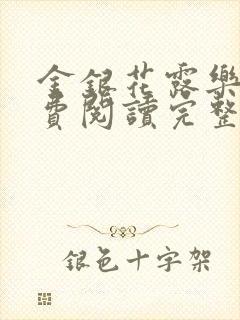 金銀花露樂
費閱讀完整
銀色十字架